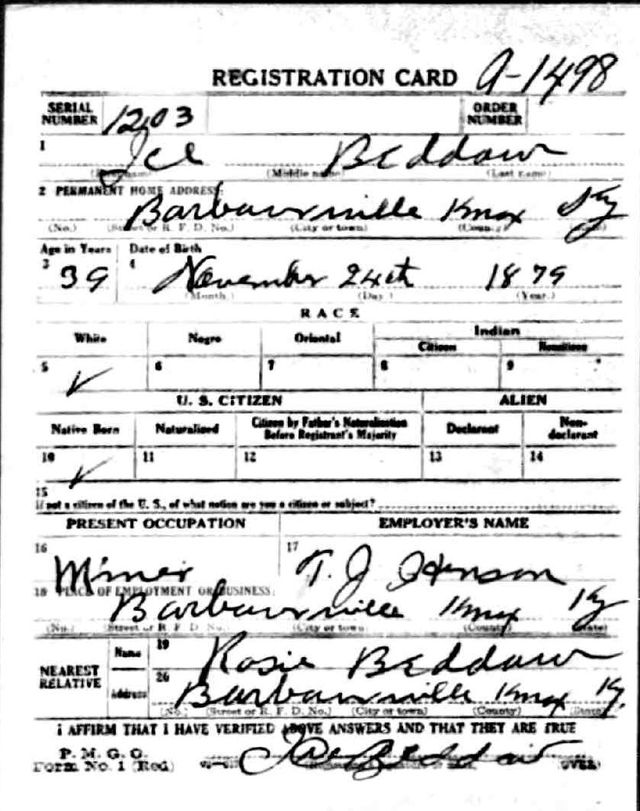 REGISTRATION CARD A-1498
SERIAL NUMBER 1203 ORDER NUMBER
1 Joe Beddow
(First name) (Middle name) (Last name)
2 PERMANENT HOME ADDRESS:
Barbourville Knox Ky
(No.) (Street or R. F. D. No.) (City or town) (County) (State)
Age in Years Date of Birth
3 39 4 November 24th 1879
(Month.) (Day.) (Year.)
RACE
White Negro Oriental Indian
Citizen Noncitizen
5 ✓ 6 7 8 9
U. S. CITIZEN ALIEN
Native Born Naturalized Citizen by Father's Naturalization Before Registrant's Majority Declarant Non-declarant
10 ✓ 11 12 13 14
15
If not a citizen of the U. S., of what nation are you a citizen or subject?
PRESENT OCCUPATION EMPLOYER'S NAME
16 Miner 17 T. J. Henson
18 PLACE OF EMPLOYMENT OR BUSINESS:
Barbourville Knox Ky
(No.) (Street or R. F. D. No.) (City or town) (County) (State)
NEAREST RELATIVE Name 19 Rosie Beddow
Address 20 Barbourville Knox Ky.
(No.) (Street or R. F. D. No.) (City or town) (County) (State)
I AFFIRM THAT I HAVE VERIFIED ABOVE ANSWERS AND THAT THEY ARE TRUE
P. M. G. O.
Form No. 1 (Red) Joe Beddow (OVER)